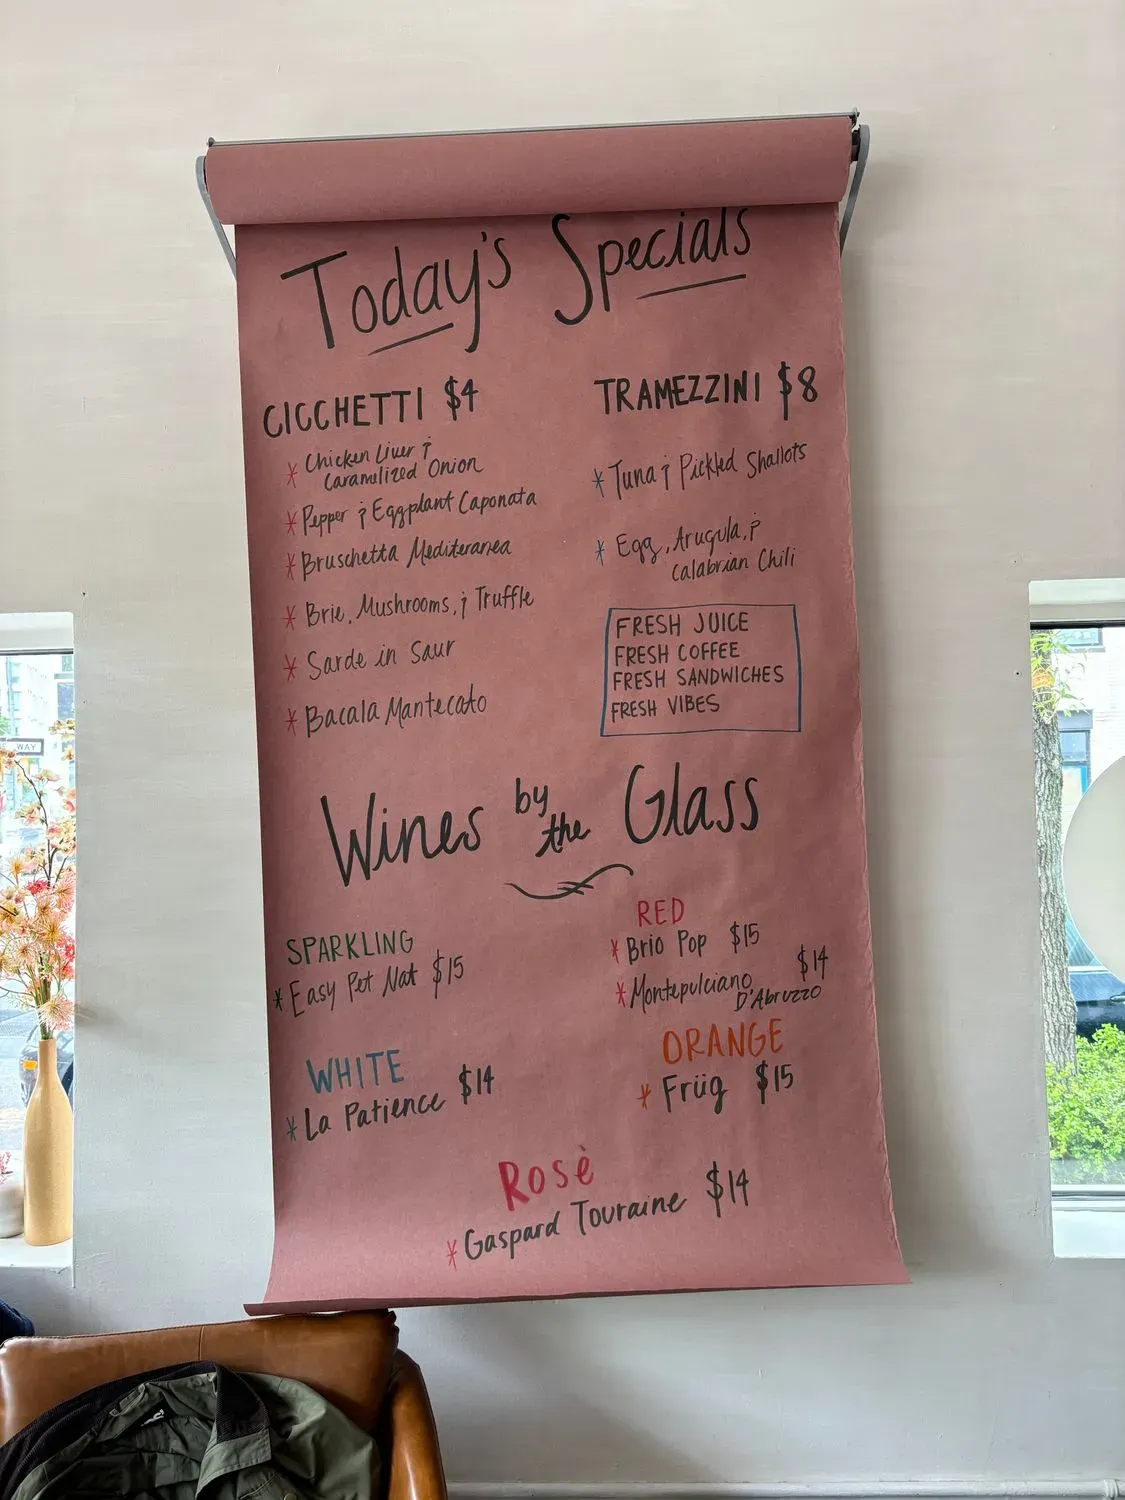 Today's Specials
CICCHETTI $4
* Chicken Liver &
Caramelized Onion
* Pepper & Eggplant Caponata
* Bruschetta Mediteranea
* Brie, Mushrooms, & Truffle
* Sarde in Saur
* Bacala Mantecato
TRAMEZZINI $8
* Tuna & Pickled Shallots
* Egg, Arugula, &
Calabrian Chili
FRESH JUICE
FRESH COFFEE
FRESH SANDWICHES
FRESH VIBES
Wines by the Glass
SPARKLING
* Easy Pet Nat $15
WHITE
* La Patience $14
RED
* Brio Pop $15
* Montepulciano $14
D'Abruzzo
ORANGE
* Früg $15
Rosè
* Gaspard Touraine $14
WAY